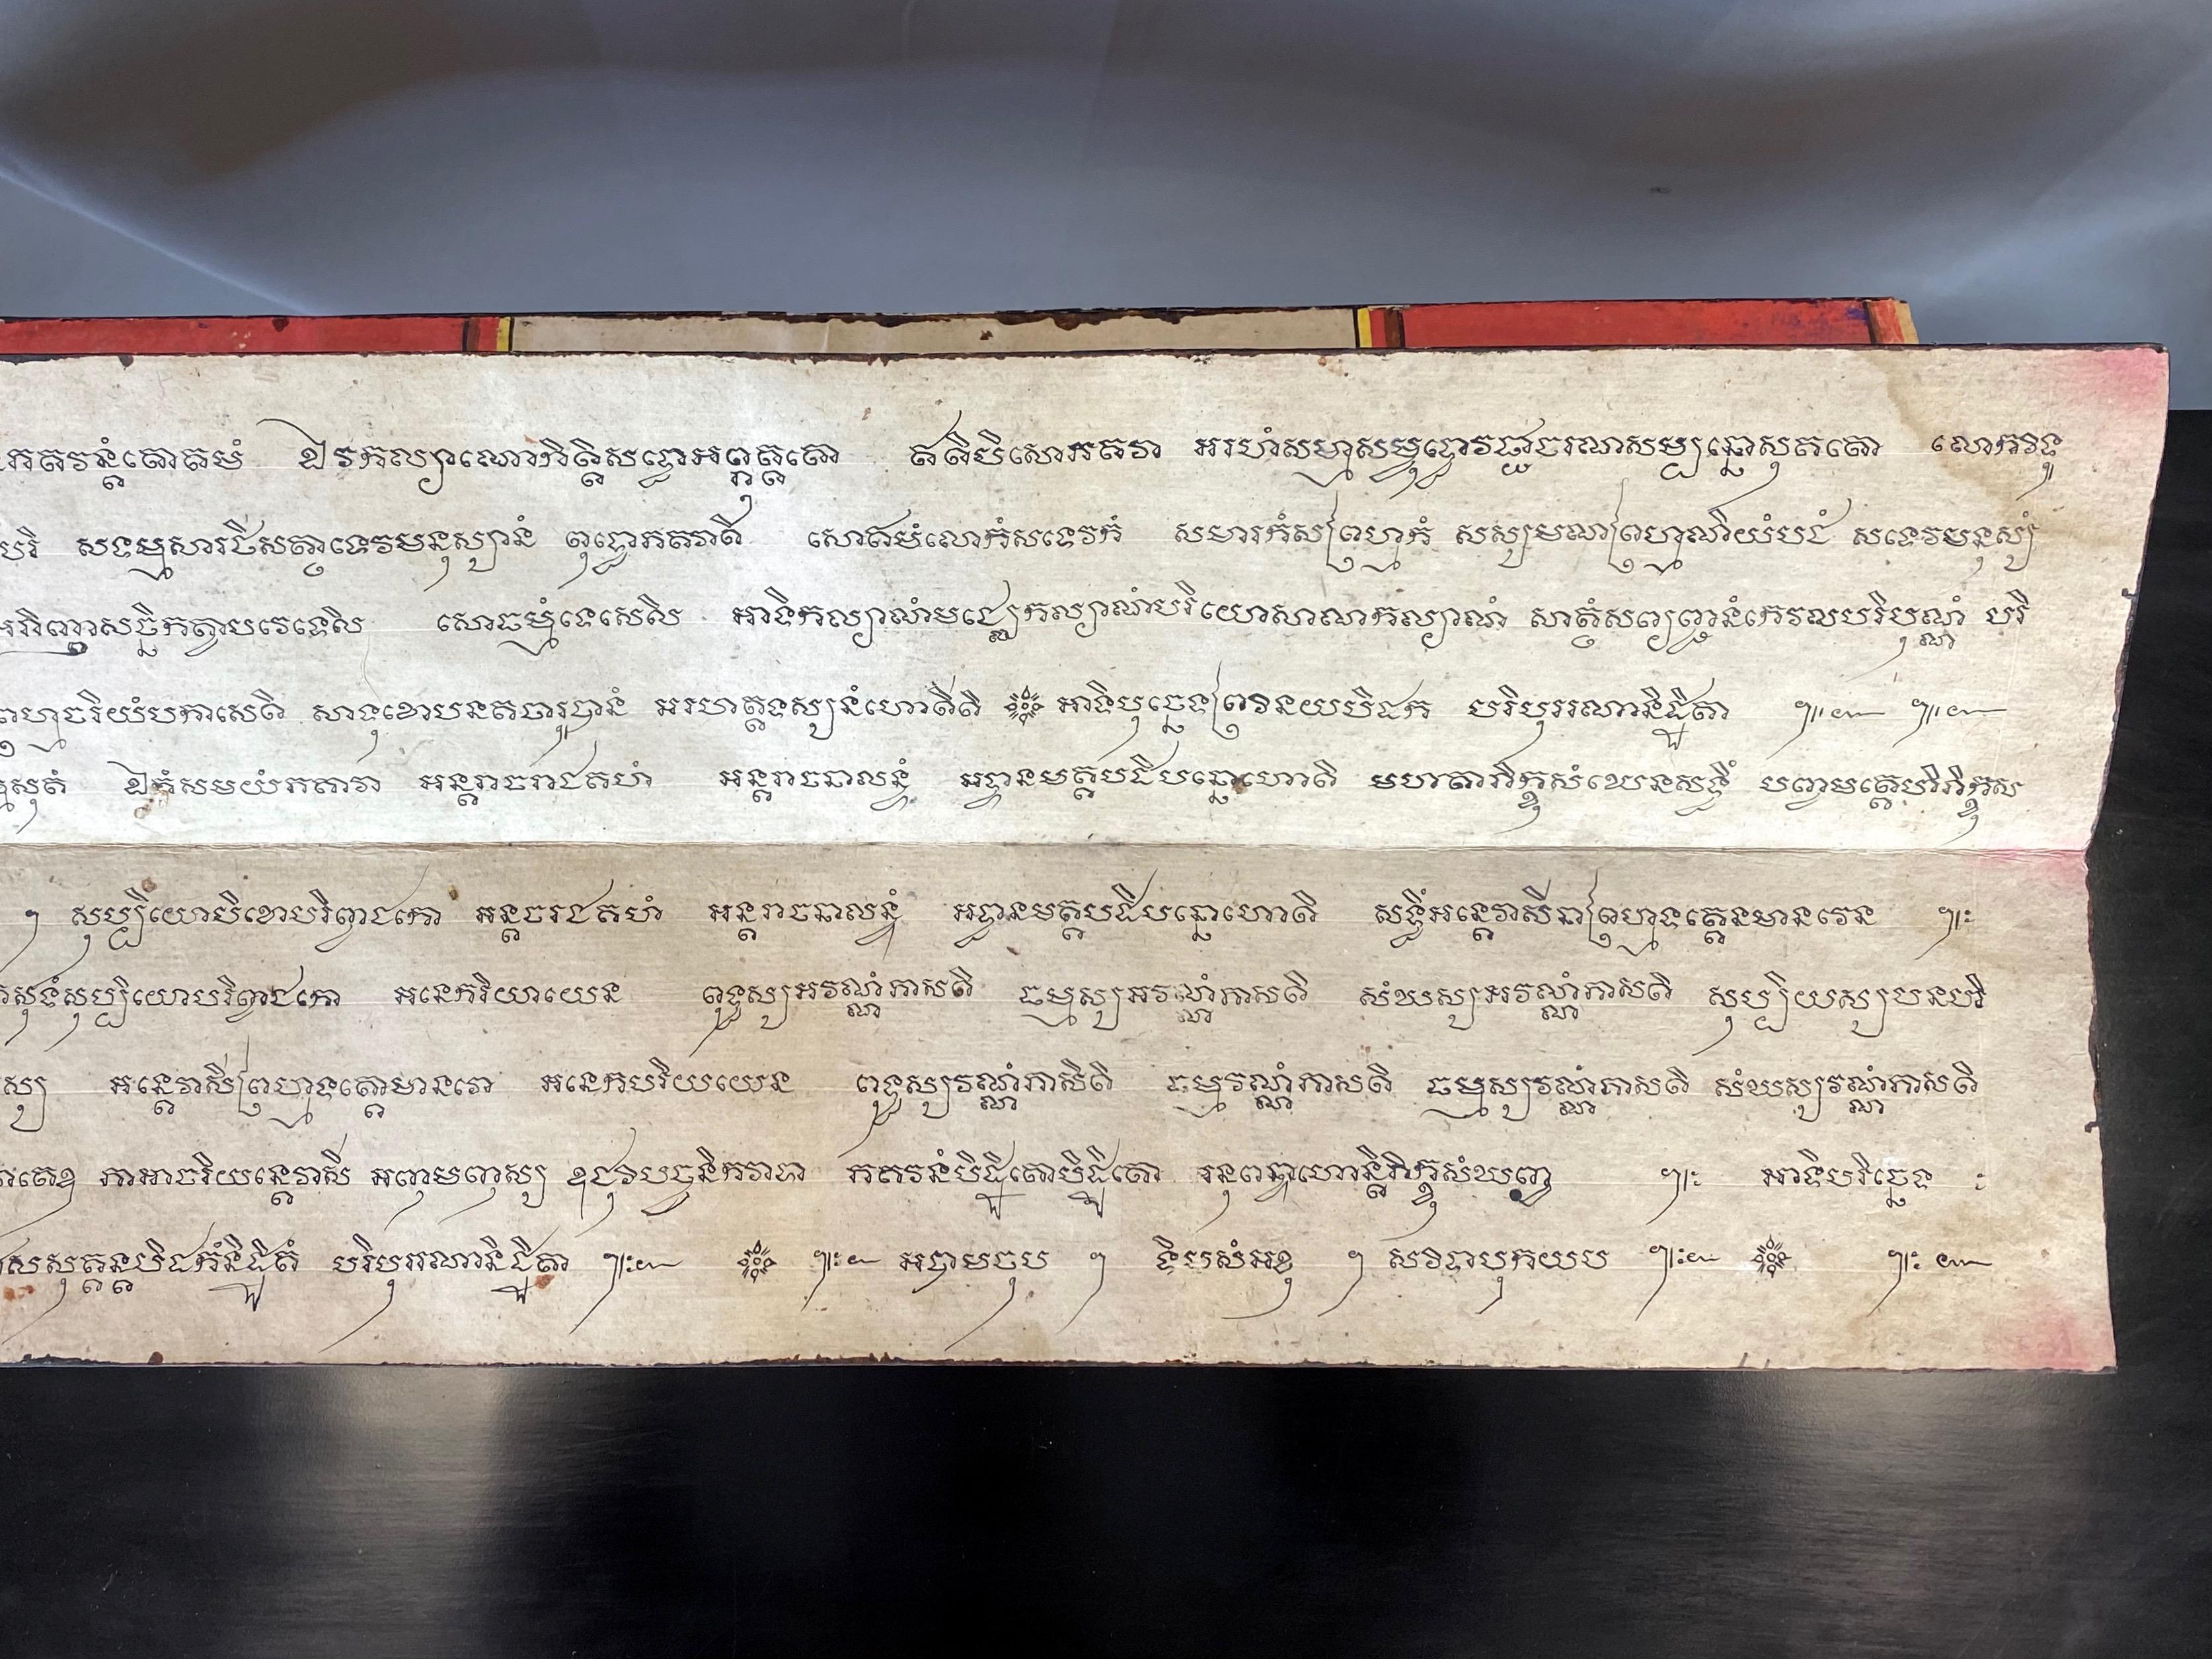 កតវន្តំគោតមំ ឯវកល្យាណោកិត្តិសទ្ទោអព្ភុគ្គតោ ឥតិបិសោភគវា អរហំសម្មាសម្ពុទ្ធោវជ្ជាចរណសម្បន្នោសុគតោ លោកវិទូ
បរិ សទម្មសារថិសត្ថាទេវមនុស្សានំ ពុទ្ធោភគវាតិ សោឥមំលោកំសទេវកំ សមារកំសព្រហ្មកំ សស្សមណព្រហ្មណិយំបជំ សទេវមនុស្សំ
អភិញ្ញាសច្ឆិកត្វាបវេទេសិ សោធម្មំទេសេសិ អាទិកល្យាណំមជ្ឈេកល្យាណំបរិយោសាណកល្យាណំ សាត្ថំសព្យញ្ជនំកេវលបរិបុណ្ណំ បរិ
ព្រហ្មចរិយំបកាសេតិ សាទុខោបនតថារូបានំ អរហត្តទស្សនំហោតីតិ អាទិបុច្ឆេទព្រវិនយបិដក បរិបុរណានិដ្ឋិតា ៕៚ ៕៚
ម្មេសុតំ ឯកំសមយំភគាវា អន្តរាចរាជគហំ អន្តរាចនាលន្ទំ អទ្ធានមគ្គបដិបន្នោហោតិ មហតាភិក្ខុសំឃេនសទ្ធឹ បញ្ចមត្តេហិភិក្ខុស
ៗ សុប្បិយោបិខោបរិព្វាជកោ អន្តចរជគហំ អន្តរាចនាលន្ទំ អទ្ធានមគ្គបដិបន្នោហោតិ សទ្ធឹអន្តេវាសីនាព្រហ្មទត្តេនមានវេន ៕
សុទំសុប្បិយោបរិព្វាជកោ អនេករិយាយេន ពុទ្ធស្សអវណ្ណំភាសតិ ធម្មស្សអវណ្ណំភាសតិ សំឃស្សអវណ្ណំភាសតិ សុប្បិយស្សបនបរិ
ស្ស អន្តេវាសីព្រហ្មទត្តោមានវោ អនេកបរិយយេន ពុទ្ធស្សវណ្ណំភាសិតិ ធម្មវណ្ណំភាសតិ ធម្មស្សវណ្ណំភាសតិ សំឃស្សវណ្ណំភាសតិ
តេឧ ភាអាចរិយន្តេវាសី អញមញស្ស ឧជុវិបច្ចនិកវាទា ភគវន្តំបិដ្ឋិតោបិដ្ឋិតោ អនុពន្ធាហោន្តិភិក្ខុសំឃញ្ច ៕ អាទិបរិច្ឆេទ ៖
សសុត្តន្តបិដកំនិដ្ឋិតំ បរិបុរណានិដ្ឋិតា ៕៚ ៕៚ អបាមចុប ៗ ទីវេសំអង្គុ ៗ សវិទាបុកយប ៕៚ ៕ ៚